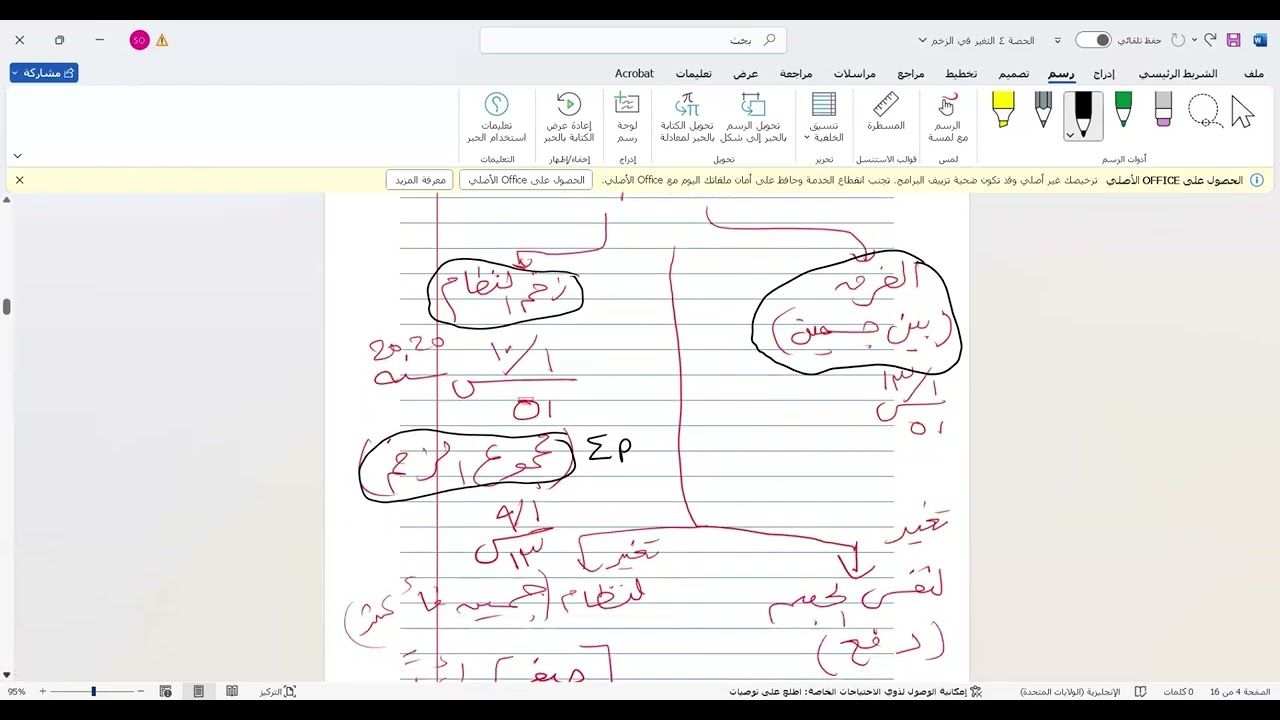 الحصة ٤ التغير في الزخم
حفظ تلقائي
بحث
SO
ملف
الشريط الرئيسي
إدراج
رسم
تصميم
تخطيط
مراجع
مراسلات
مراجعة
عرض
تعليمات
Acrobat
مشاركة
أدوات الرسم
الرسم مع لمسة
لمس
المسطرة
قوالب الاستنسل
تنسيق الخلفية
تحرير
تحويل الرسم بالحبر إلى شكل
تحويل الكتابة بالحبر لمعادلة
تحويل
لوحة رسم
إدراج
إعادة عرض الكتابة بالحبر
إخفاء/إظهار
تعليمات استخدام الحبر
التعليمات
الحصول على OFFICE الأصلي ترخيصك غير أصلي وقد تكون ضحية تزييف البرامج. تجنب انقطاع الخدمة وحافظ على أمان ملفاتك اليوم مع Office الأصلي.
الحصول على Office الأصلي
معرفة المزيد
الفرق
(بين جسمين)
زخم النظام
20.20
سنة
(مجموع الزخم)
Σp
تغير
لنفس الجسم
(دفع)
تغير
لنظام (جسمين فأكثر)
الصفحة 4 من 16
0 كلمات
الإنجليزية (الولايات المتحدة)
إمكانية الوصول لذوي الاحتياجات الخاصة: اطلع على توصيات
التركيز
95%